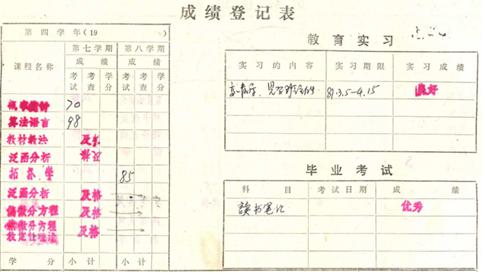 成绩登记表
第四学年(19
第七学期 第八学期
课程名称 成绩 成绩
考试 考查 学分 考试 考查 学分
概率统计 70
算法语言 98
教材教法 及格
泛函分析 及格
拓扑学 85
泛函分析 及格
偏微分方程 及格
偏微分方程 及格
学分 小计 小计
教育实习
实习的内容 实习期限 实习成绩
81.3.5-4.15 良好
毕业考试
科目 考试日期 成绩
读书笔记 优秀